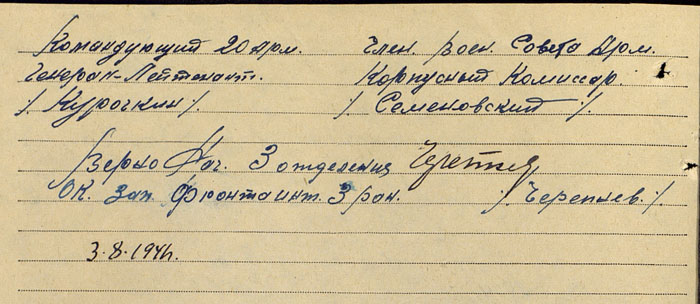 Командующий 20 Арм. Член. Воен. Совета Арм.
Генерал-Лейтенант. Корпусный Комиссар.
/ Курочкин /. / Семеновский /.
Верно Нач. 3 отделения
ОК. Зап. Фронта инт. 3 ран. / Черепнев. /.
3.8.1941г.